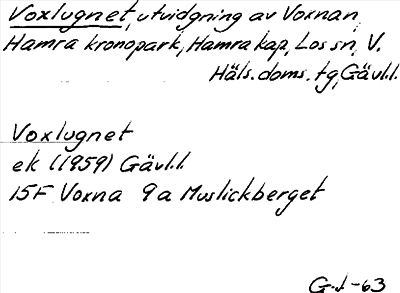 Voxlugnet, utvidgning av Voxnan,
Hamra kronopark, Hamra kap, Los sn, V.
Häls. doms. tg, Gävl.l.
Voxlugnet
ek (1959) Gävl.l
15F Voxna 9a Muslickberget
G.J-63